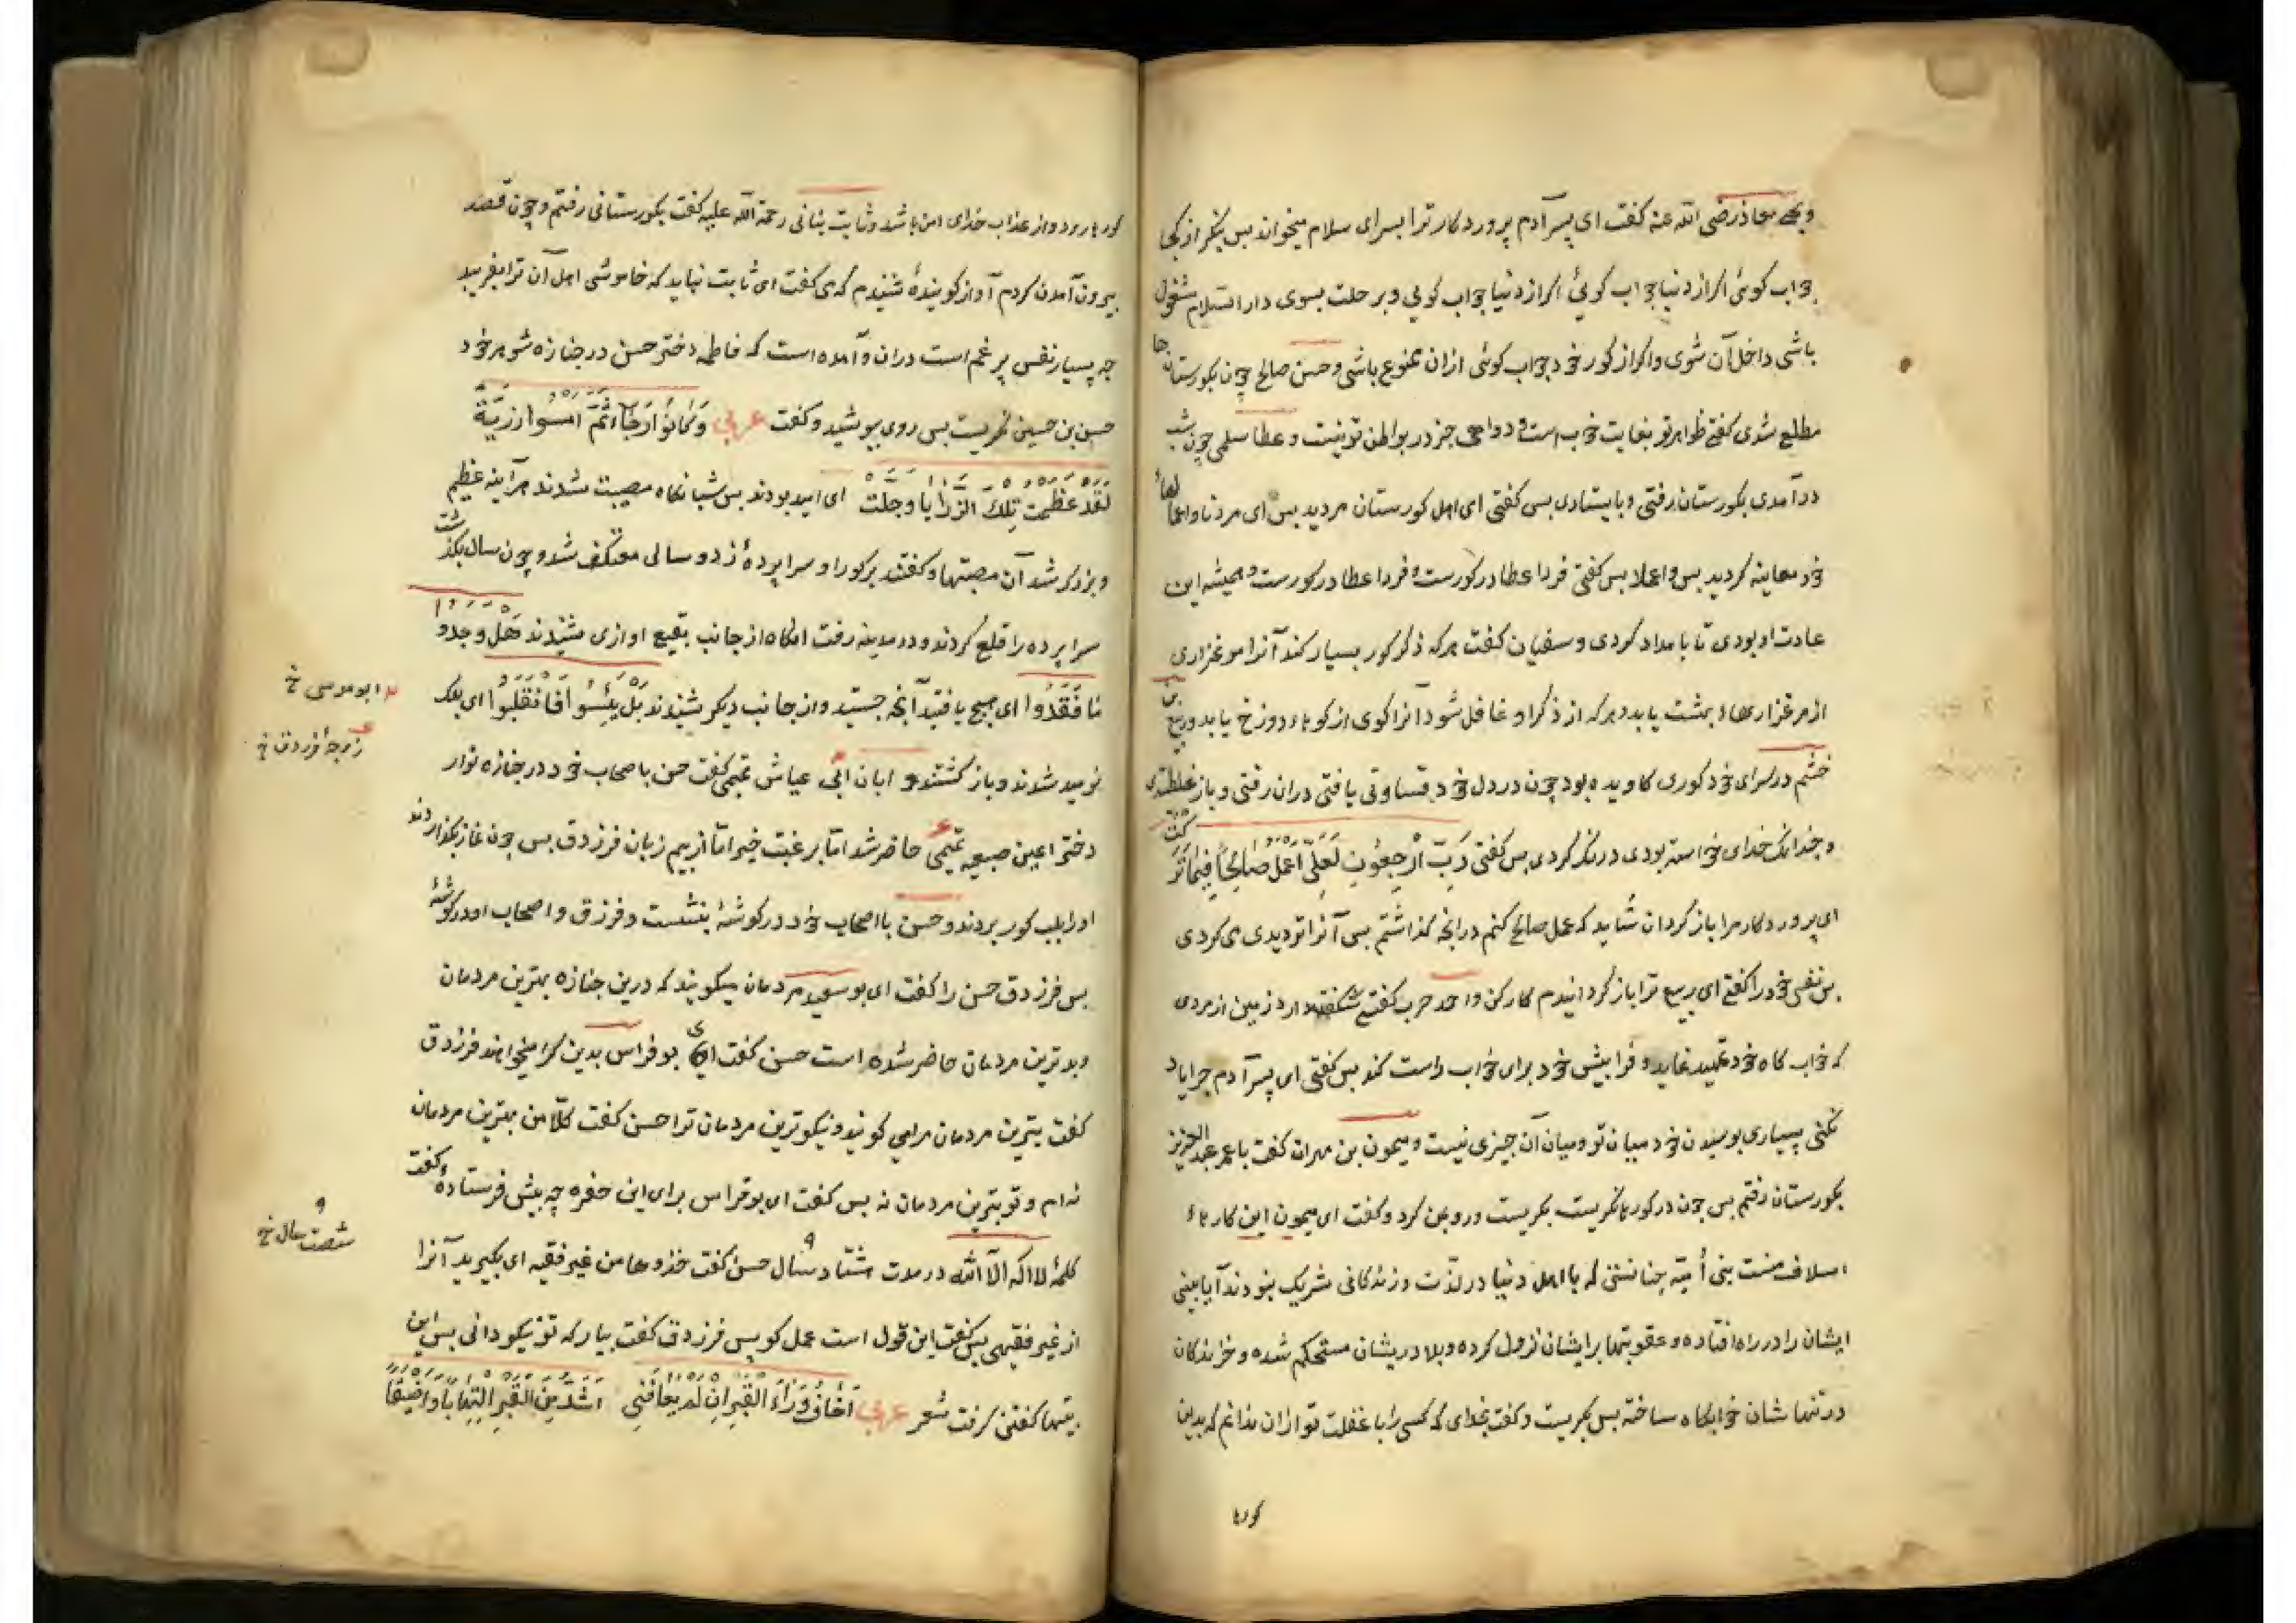 ویحیی معاذ رضی الله عنه کفت ای پسر آدم پروردکار ترا بسرای سلام میخواند بس بنکر از کجا
جواب کوئی اکر از دنیا جواب کوئی اکر از دنیا جواب کوئی و برحلت بسوی دار السلام مشغول
باشی داخل آن شوی واکر از کور خود جواب کوئی ازان ممنوع باشی و حسن صالح چون بکورستانها
مطلع شدی کفتی ظواهر تو بغایت خوب است و دواهی جز در بواطن تو نیست و عطا سلمی چون شب
درآمدی بکورستان رفتی و بایستادی بس کفتی ای اهل کورستان مردید بس ای مرد تا و اعمالها
خود معاینه کردید بس و اعملا بس کفتی فردا عطا در کورست و فردا عطا در کورست و همیشه این
عادت او بودی تا بامداد کردی و سفیان کفت هر که ذکر کور بسیار کند آنرا مرغزاری
از مرغزارهاء بهشت یابد و هر که از ذکر او غافل شود آنرا کوی از کوهاء دوزخ یابد و ربیع بن
خثیم در سرای خود کوری کاویده بود چون در دل خود قساوتی یافتی دران رفتی و باز غلطیدی
و چندانک خدای خواسته بودی درنک کردی بس کفتی رَبِّ ارْجِعُونِ لَعَلّی اَعْمَلُ صَالِحاً فِیمَا تَرَکْتُ
ای پروردکار مرا باز کردان شاید که عمل صالح کنم درانچه کذاشتم بس آنرا تردیدی می کردی
بس نفس خود را کفتی ای ربیع ترا باز کردانیدم کار کن و احمد حرب کفتی شکفت دارد زمین از مردی
که خواب کاه خود تمهید نماید و فرابیش خود برای خواب راست کند بس کفتی ای پسر آدم چرا یاد
نکنی بسیاری بوسیدن خود میان تو ومیان آن چیزی نیست و میمون بن مهران کفت با عمر عبد العزیز
بکورستان رفتم بس چون در کورها نکریست بکریست و روی بمن کرد وکفت ای میمون این کارهاء
اسلاف منست بنی اُمیّه چنانستی که با اهل دنیا در لذّت و زندکانی شریک نبودند آیا ببینی
ایشان را در راه افتاده و عقوبتها بر ایشان نزول کرده و بلا در یشان مستحکم شده و خزندکان
در تنهاشان خوابکاه ساخته بس بکریست و کفت بخدای که کسی را با غفلت تر ازان ندانم که بدین
کورها
کورها رود و از عذاب خدای امن باشد و ثابت بنانی رحمة الله علیه کفت بکورستانی رفتم و چون قصد
بیرون آمدن کردم آواز کوینده شنیدم که می کفت ای ثابت نباید که خاموشی اهل آن ترا بفریبد
چه بسیار نفس پر غم است دران و آمده است که فاطمه دختر حسن در جنازه شوهر خود
حسن بن حسین نکریست بس روی بپوشید و کفت عربی وَکَانُوا رَجَاءً ثُمَّ اَمْسَوا رَزِیَّةً
لَقَدْ عَظُمَتْ تِلْکَ الرَّزَایَا وَجَلَّتْ ای امید بودند بس شبانکاه مصیبت شدند هر آینه عظیم
و بزرک شد آن مصیبتها و کفتند بر کور او سرابرده زد و سالی معتکف شد و چون سال بکذشت
سرابرده را قلع کردند و در مدینه رفت انکاه از جانب بقیع اوازی شنیدند هَل وجدو
مَا فَقَدُوا ای هیچ یافتید آنچه جستید و از جانب دیکر شنیدند بَلْ یَئِسُوا فَانْقَلَبُوا ای بلک
نومید شدند و باز کشتند و ابان ابی عیاش تمیمی کفت حسن با صحاب خود در جنازه نوار
ابوموسی خ
زوجۀ فرزدق خ
دختر اعین صبیعه تمیمی حاضر شد اما بر غبت خیر امّا از بیم زبان فرزدق بس چون نماز بکذاردند
او را بلب کور بردند و حسن با اصحاب خود در کوشۀ بنشست و فرزدق و اصحاب او در کوشۀ
بس فرزدق حسن را کفت ای بو سعید مردمان میکویند که درین جنازه بهترین مردمان
و بدترین مردمان حاضر شده است حسن کفت ای بو فراس بدین کرا میخواهند فرزدق
کفت بهترین مردمان مرا می کویند و نیکوترین مردمان ترا حسن کفت کلّا من بهترین مردمان
نه ام و تو بترین مردمان نه بس کفت ای بو فراس برای این حفره چه بیش فرستادۀ کفت
کلمۀ لا اله الّا الله در مدت هشتاد سال حسن کفت خذوها من غیر فقیه ای بکیرید آنرا
شصت سال خ
از غیر فقیهی بس کفت این قول است عمل کو بس فرزدق کفت بیار که تو نیکو دانی بس این
بیتها کفتن کرفت شعر عربی اَخَافُ وَرَاءَ الْقَبْرِ اِنْ لَمْ یُعَافِنِی اَشَدَّ مِنَ الْقَبْرِ الْتِهَاباً وَاَضْیَقَا